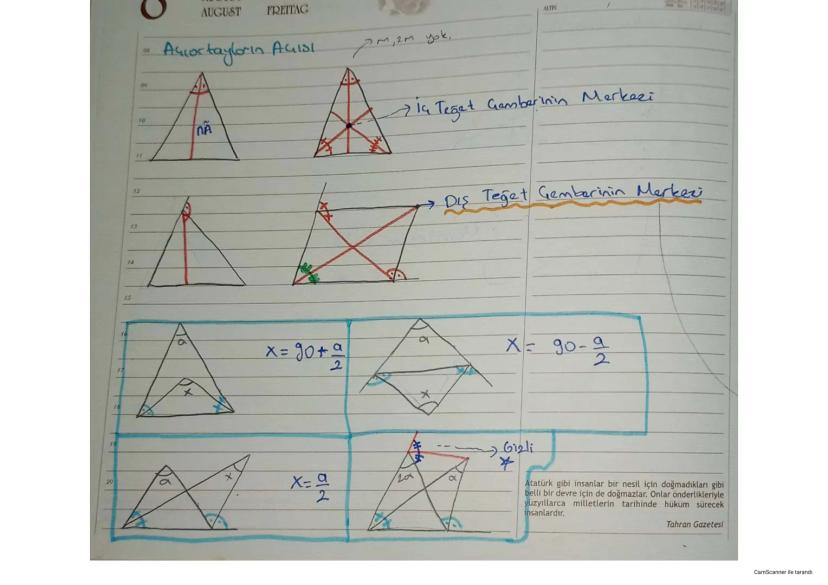 AUGUST FREITAG
Açıortayların Açısı
m, 2m yok.
09
10
11
nA
İç Teğet Çemberinin Merkezi
12
13
14
15
Dış Teğet Çemberinin Merkezi
16
17
18
a
x
x = 90 + a/2
a
x
x = 90 - a/2
19
20
a
x
x = a/2
2a
a
Gizli
Atatürk gibi insanlar bir nesil için doğmadıkları gibi
belli bir devre için de doğmazlar. Onlar önderlikleriyle
yüzyıllarca milletlerin tarihinde hüküm sürecek
insanlardır.
Tahran Gazetesi
CamScanner ile tarandı